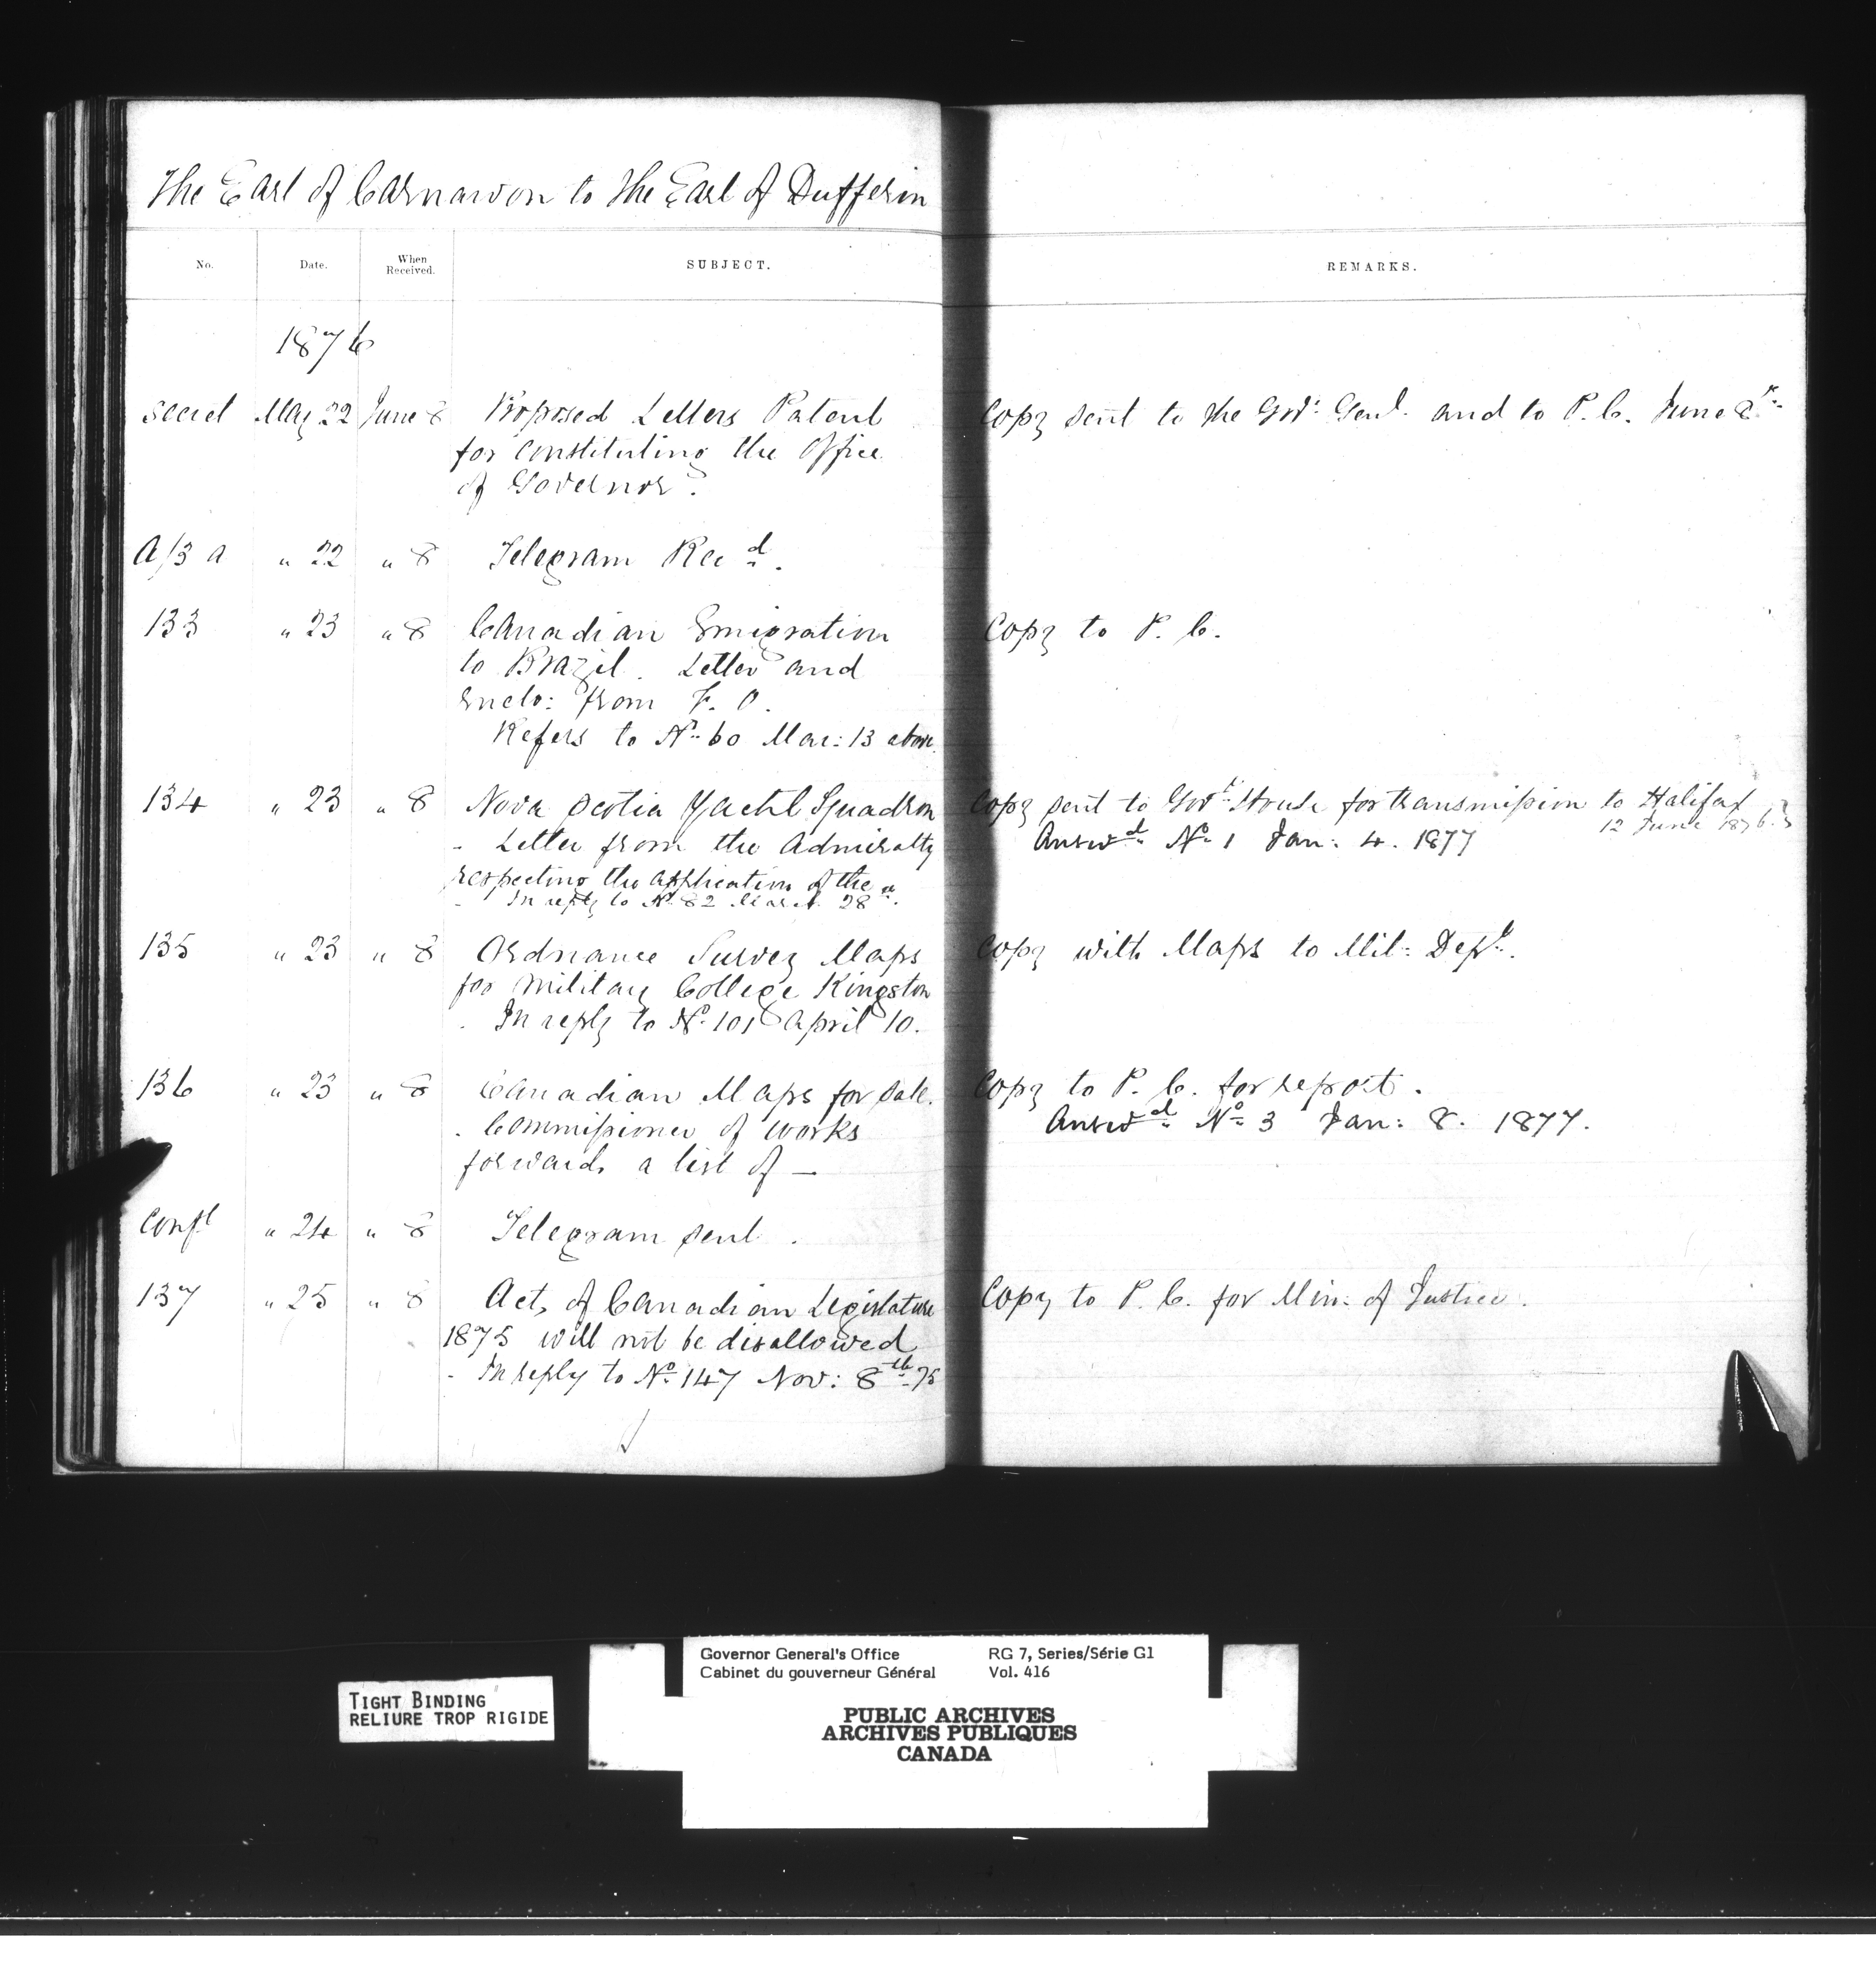 The Earl of Carnarvon to the Earl of Dufferin
No. Date. When Received. SUBJECT. REMARKS.
1876
Secret May 22 June 8 Proposed Letters Patent Copy sent to the Govr. Genl. and to P. C. June 8th.
for constituting the Office
of Governor.
A/3 a " 22 " 8 Telegram Recd.
133 " 23 " 8 Canadian Emigration Copy to P. C.
to Brazil. Letter and
Enclo: from F. O.
Refers to No. 60 Mar: 13 above.
134 " 23 " 8 Nova Scotia Yacht Squadron Copy sent to Govt. House for transmission to Halifax
12 June 1876.
- Letter from the Admiralty Answd. No. 1 Jan: 4. 1877
respecting the application of the
- In reply to No. 82 March 28th.
135 " 23 " 8 Ordnance Survey Maps Copy with Maps to Mil: Dept.
for Military College Kingston
. In reply to No. 101 April 10.
136 " 23 " 8 Canadian Maps for Sale. Copy to P. C. for report.
. Commissioner of Works Answd. No. 3 Jan: 8. 1877.
forwards a list of —
Confl " 24 " 8 Telegram sent.
137 " 25 " 8 Acts of Canadian Legislature Copy to P. C. for Min: of Justice.
1875 will not be disallowed
- In reply to No. 147 Nov: 8th. 75
Governor General's Office RG 7, Series/Série G1
Cabinet du gouverneur Général Vol. 416
TIGHT BINDING
RELIURE TROP RIGIDE
PUBLIC ARCHIVES
ARCHIVES PUBLIQUES
CANADA